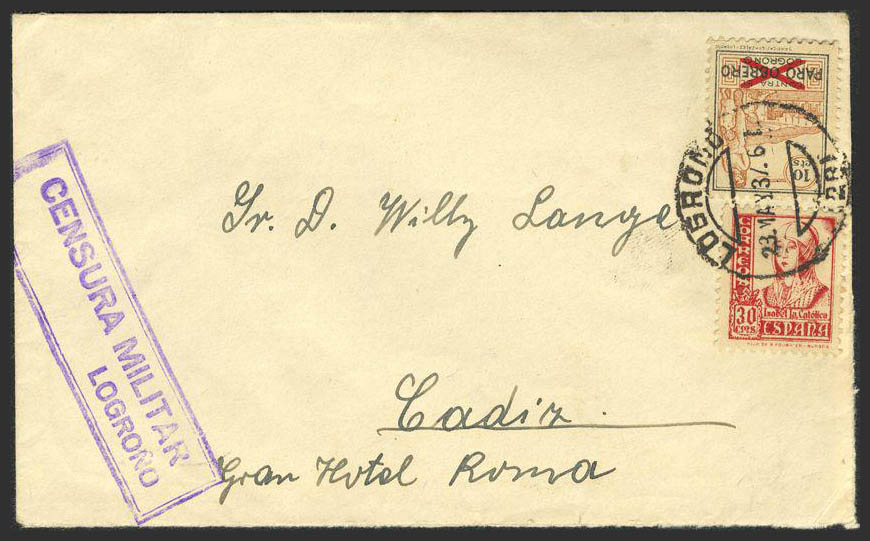 CONTRA EL
PARO OBRERO
LOGROÑO
10
cts
LOGROÑO
23.MAY.37.6T.
CORREOS
30
CTS
Isabel la Católica
ESPAÑA
Sr. D. Willy Lange
Cadiz.
Gran Hotel Roma
CENSURA MILITAR
LOGROÑO